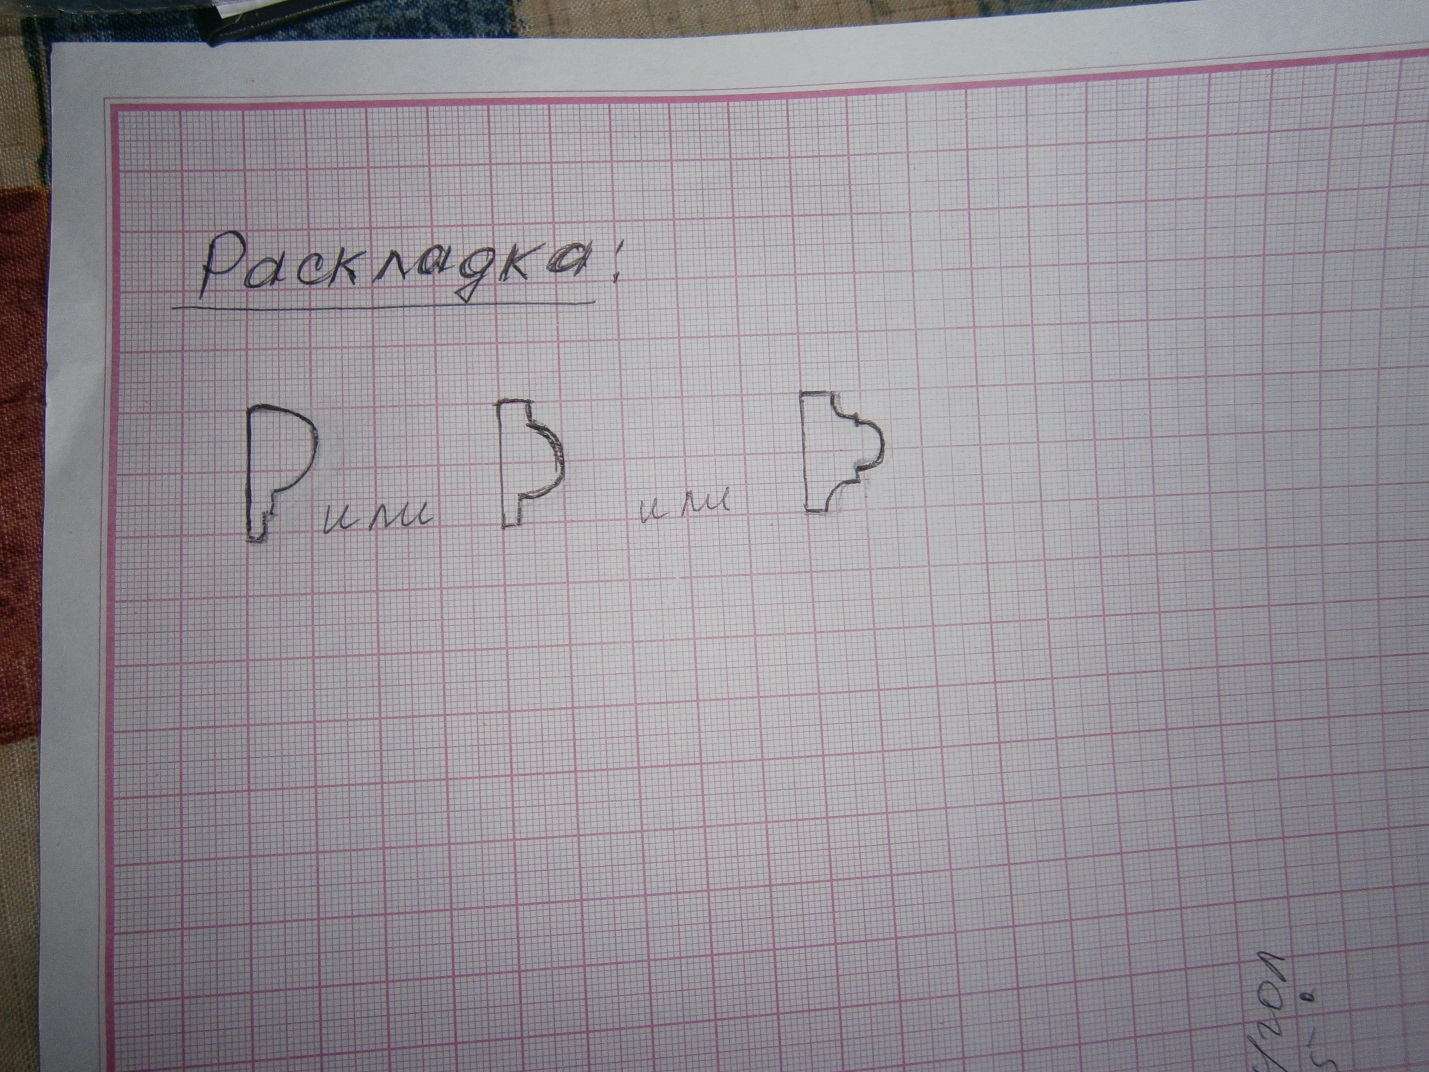 Раскладка:
или или
угол